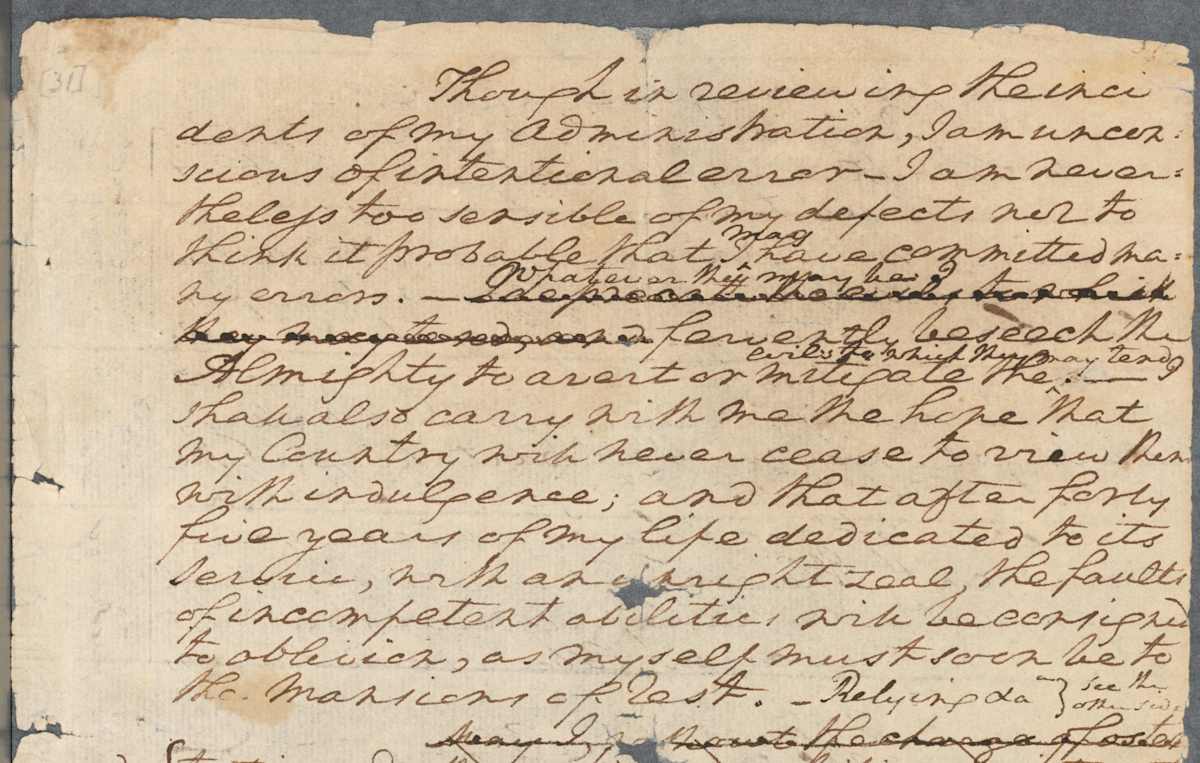 [31]
Though in reviewing the inci
dents of my Administration, I am uncon=
scious of intentional error – I am never=
theless too sensible of my defects not to
may
think it probable that I have committed ma=
Whatever they may be I
ny errors. – I
fervently beseech the
evils to which they may tend
Almighty to avert or mitigate the . — I
shall also carry with me the hope that
my Country will never cease to view them
with indulgence; and that after forty
five years of my life dedicated to its
Service, with an upright zeal, the faults
of incompetent abilities will be consigned
to oblivion, as myself must soon be to
the Mansions of rest. – Relying &a
see the
other side
May I the charge of